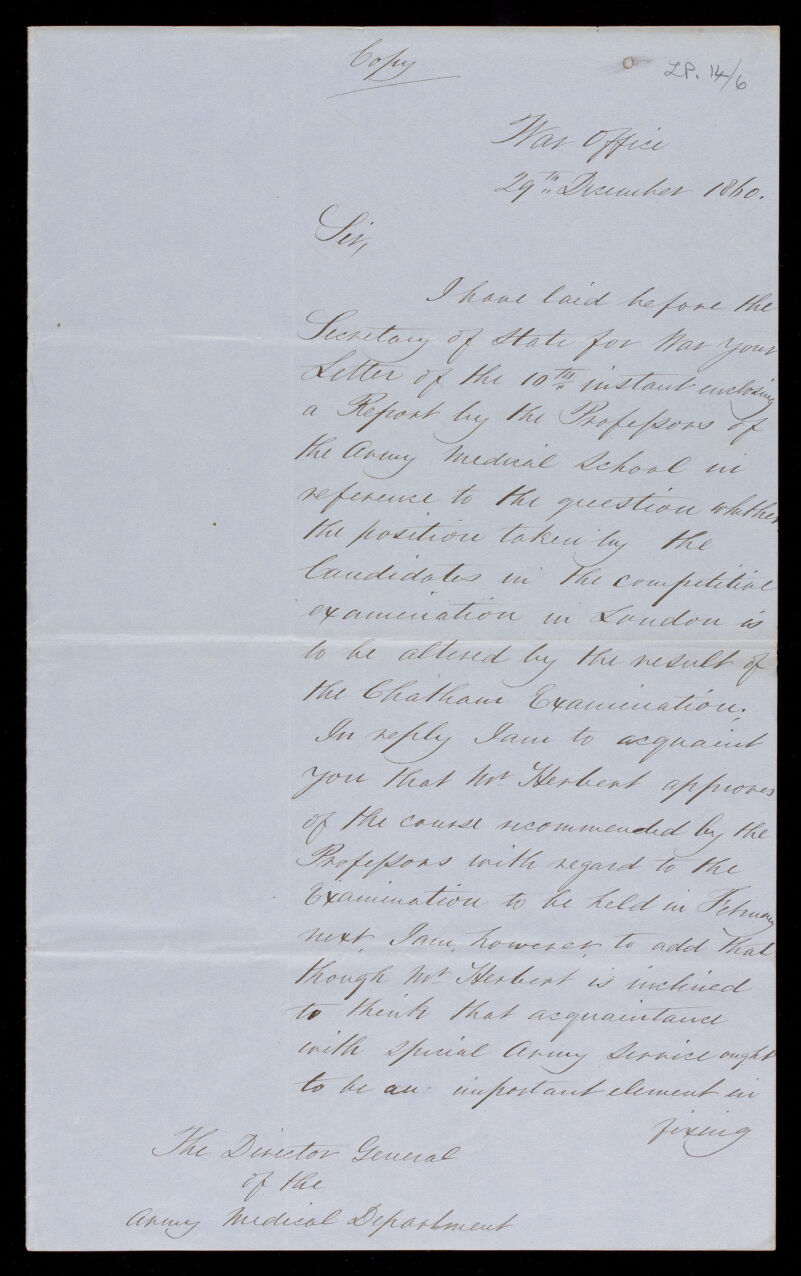 Copy
LP. 14/6
War Office
29th December 1860.
Sir,
I have laid before the
Secretary of State for War your
Letter of the 10th instant enclosing
a Report by the Professors of
the Army Medical School in
reference to the question whether
the position taken by the
Candidates in the competitive
examination in London is
to be altered by the result of
the Chatham Examination.
In reply I am to acquaint
you that Mr Herbert approves
of the course recommended by the
Professors with regard to the
Examination to be held in February
next. I am, however, to add that
though Mr Herbert is inclined
to think that acquaintance
with special Army Service ought
to be an important element in
fixing
The Director General
of the
Army Medical Department